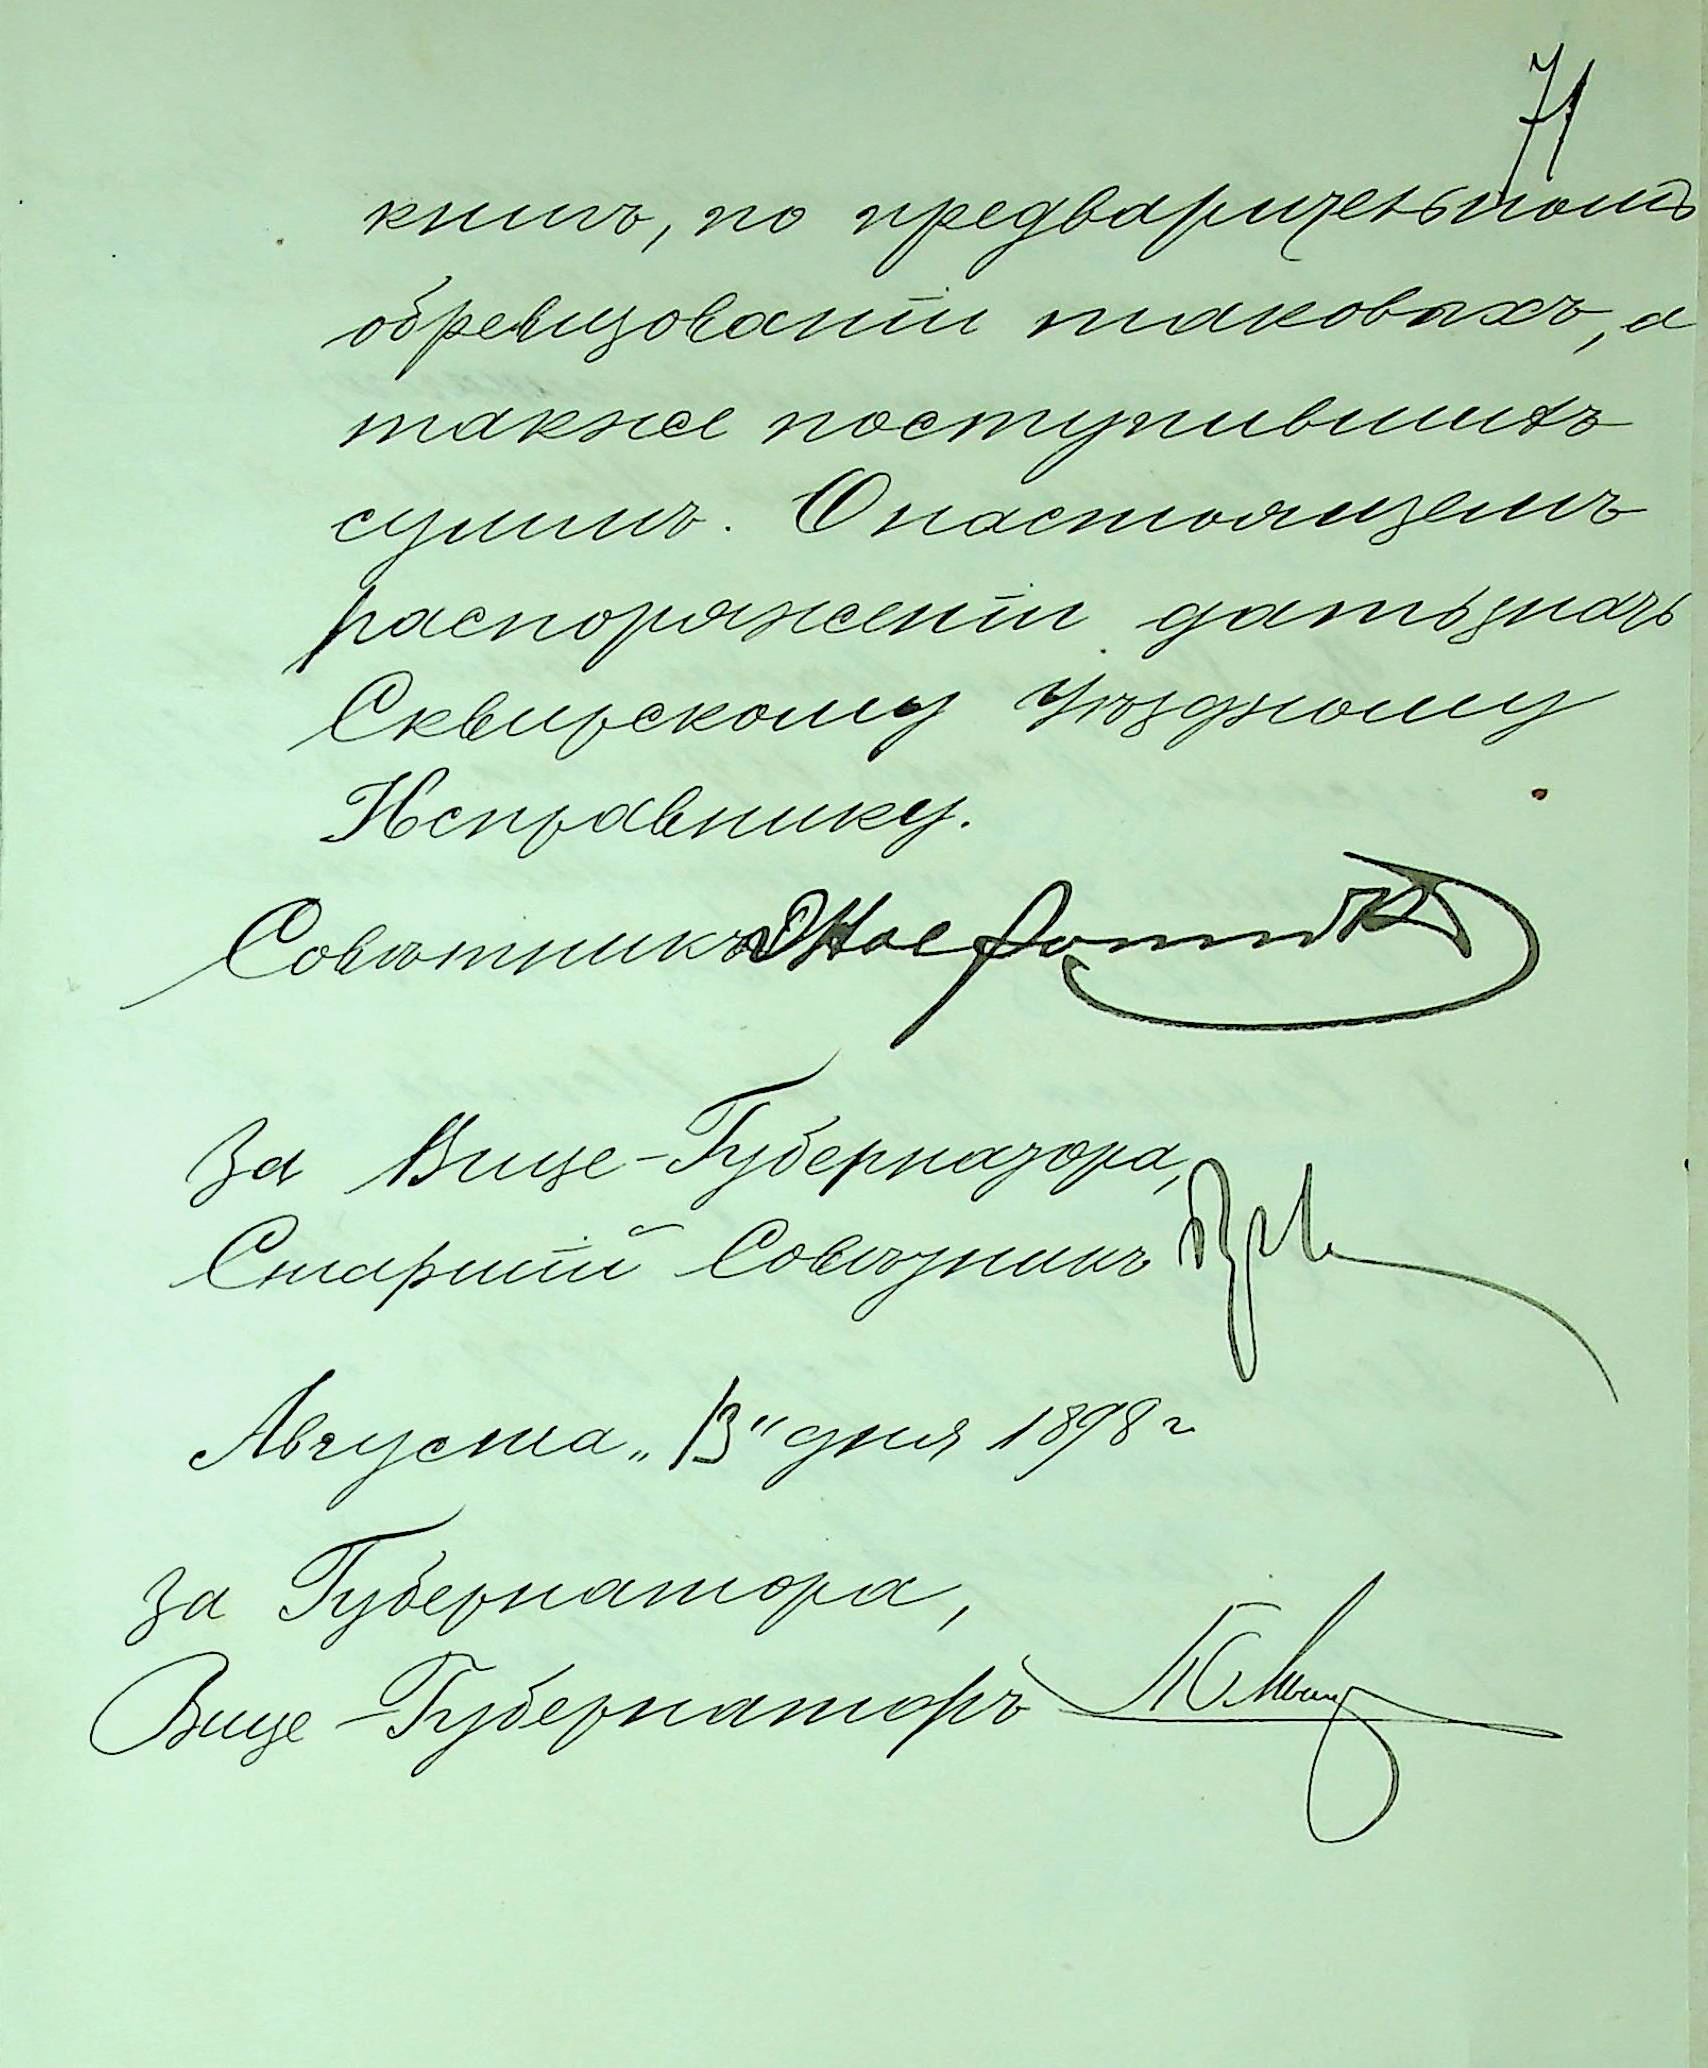 71
книгъ, по предварительномъ
обревизованіи таковыхъ, а
также поступившихъ
суммъ. О настоящемъ
распоряженіи дать знать
Сквирскому Уѣздному
Исправнику.
Совѣтникъ
За Вице-Губернатора,
Старшій Совѣтникъ
Августа „13" дня 1898 г
За Губернатора,
Вице-Губернаторъ